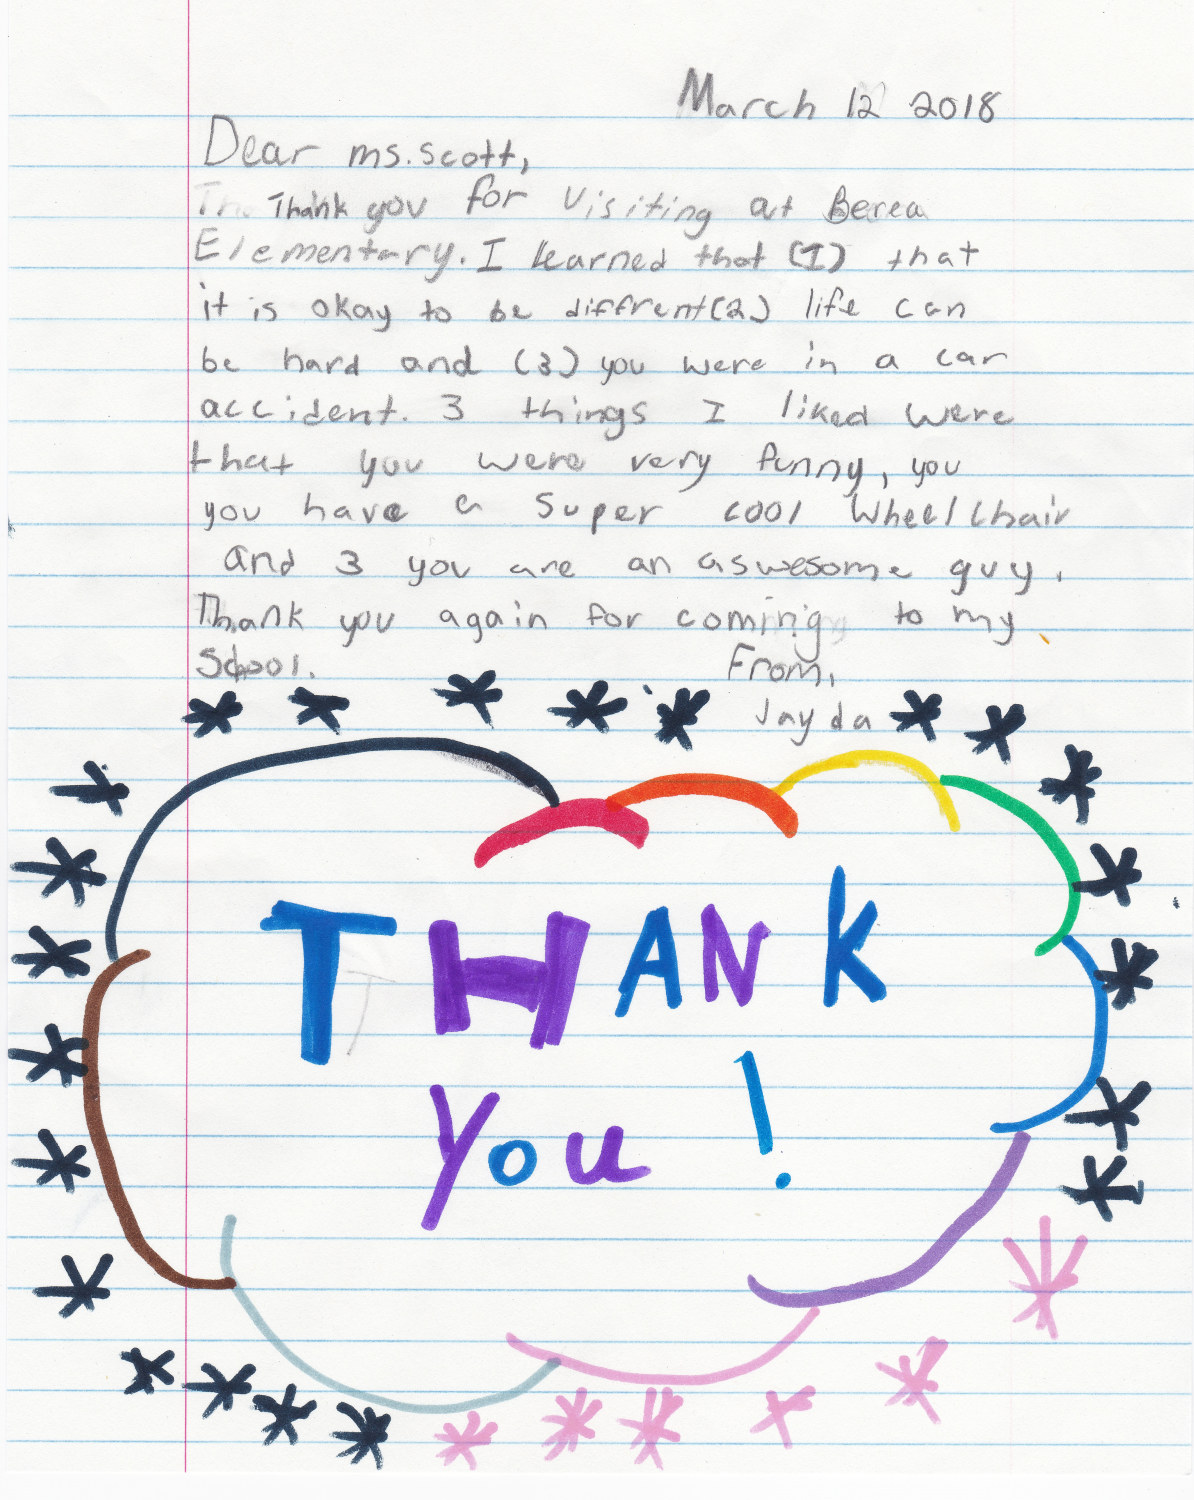 March 12 2018
Dear ms. scott,
Thank you for Visiting at Berea
Elementary. I learned that (1) that
it is okay to be diffrent (2) life can
be hard and (3) you were in a car
accident. 3 things I liked were
that you were very funny, you
you have a super cool Wheelchair
and 3 you are an aswesome guy.
Thank you again for coming to my
School. From,
Jayda
THANK
you!